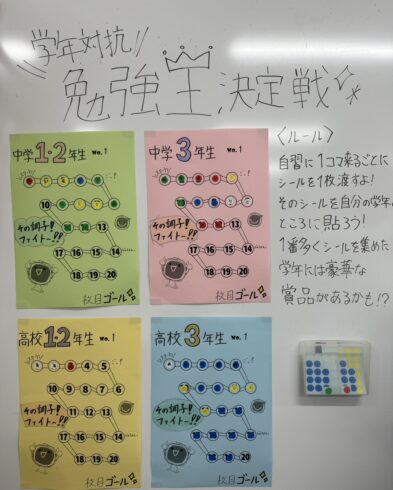 学年対抗!!
勉強王決定戦
〈ルール〉
自習に1コマ来るごとに
シールを1枚渡すよ!
そのシールを自分の学年の
ところに貼ろう!
1番多くシールを集めた
学年には豪華な
賞品があるかも!?
中学1・2年生 No.1
10
13
その調子!!
ファイトー!!!
17 16 15 14
18 19 20
枚目ゴール
中学3年生 No.1
13
その調子!!
ファイトー!!!
17 16 15 14
18 19 20
枚目ゴール
高校1・2年生 No.1
4 5
10 9 8 7 6
11 12 13
その調子!!
ファイトー!!!
17 16 15 14
18 19 20
枚目ゴール
高校3年生 No.1
その調子!!
ファイトー!!!
20
枚目ゴール